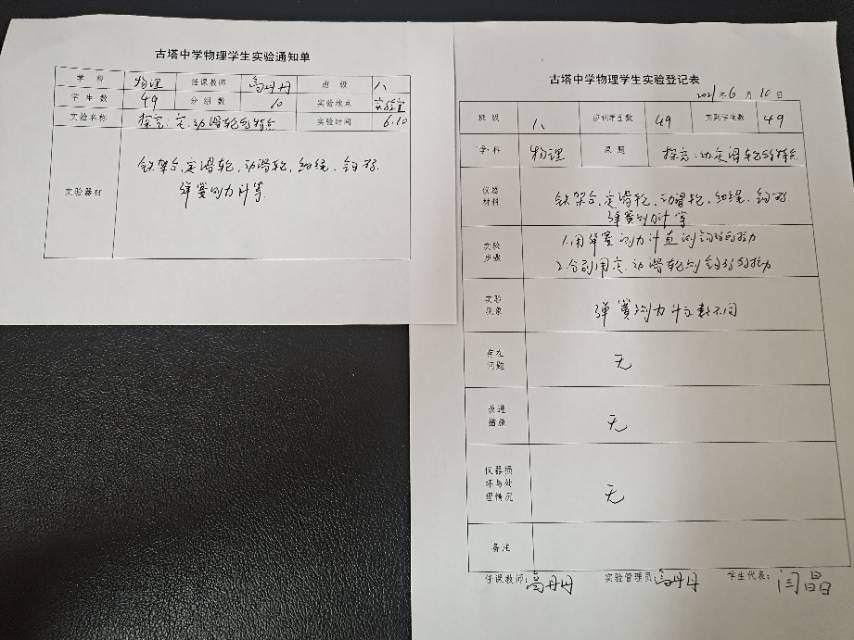 古塔中学物理学生实验通知单
学科 物理 任课教师 高丹丹 班级 八
学生数 49 分组数 10 实验地点 实验室
实验名称 探究:定.动滑轮的特点 实验时间 6.10
实验器材 铁架台,定滑轮,动滑轮,细绳,钩码.
弹簧测力计等
古塔中学物理学生实验登记表
2021年6月10日
班级 八 应到学生数 49 实到学生数 49
学科 物理 课题 探究:动定滑轮的特点
仪器材料 铁架台,定滑轮,动滑轮,细绳,钩码
弹簧测力计等
实验步骤 1.用弹簧测力计直测钩码的拉力
2.分别用定.动滑轮测钩码的拉力
实验现象 弹簧测力计读数不同
有无问题 无
改进措施 无
仪器损坏与处理情况 无
备注
任课教师:高丹丹 实验管理员:高丹丹 学生代表:闫晶